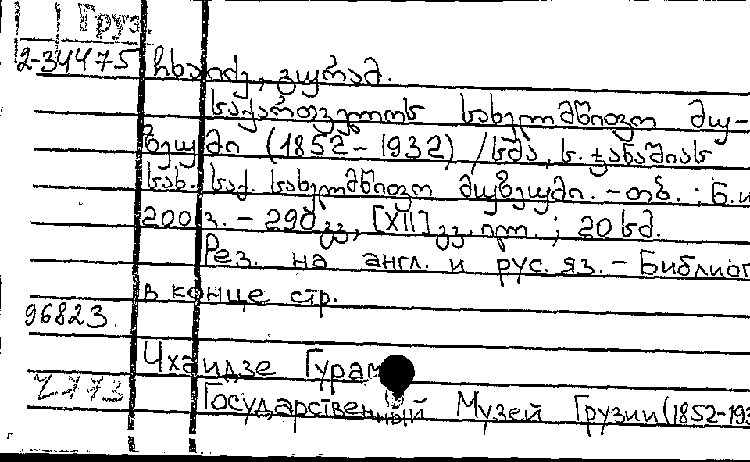 Груз.
2-34475 ჩხაიძე, გურამ.
საქართველოს სახელმწიფო მუ-
ზეუმი (1852-1932) / სმა, ს. ჯანაშიას
სახ. საქ. სახელმწიფო მუზეუმი. - თბ. : Б.и
2003. - 290 გვ., [XII] გვ. ილ. ; 20 სმ.
Рез. на англ. и рус. яз. - Библиог
в конце стр.
96823.
Чхаидзе Гурам
2773
Государственный Музей Грузии (1852-193